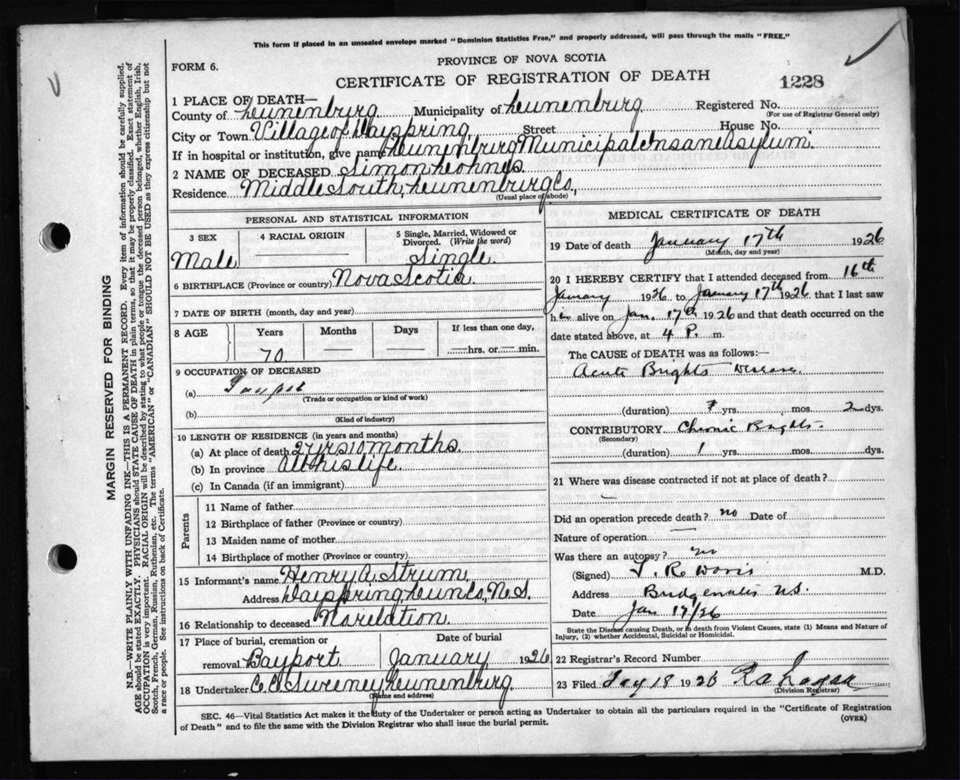 This form if placed in an unsealed envelope marked "Dominion Statistics Free," and properly addressed, will pass through the mails "FREE."
FORM 6.
PROVINCE OF NOVA SCOTIA
CERTIFICATE OF REGISTRATION OF DEATH
1228
1 PLACE OF DEATH—
County of Lunenburg Municipality of Lunenburg Registered No.
(For use of Registrar General only)
City or Town Village of Dayspring Street House No.
If in hospital or institution, give name Lunenburg Municipal Insane Asylum.
2 NAME OF DECEASED Simon Leohnes
Residence Middle South, Lunenburg Co,
(Usual place of abode)
PERSONAL AND STATISTICAL INFORMATION
3 SEX
4 RACIAL ORIGIN
5 Single, Married, Widowed or Divorced. (Write the word)
Male
Single
6 BIRTHPLACE (Province or country) Nova Scotia
7 DATE OF BIRTH (month, day and year)
8 AGE
Years
Months
Days
If less than one day,
70 — — hrs. or — min.
9 OCCUPATION OF DECEASED
(a) Pauper
(Trade or occupation or kind of work)
(b)
(Kind of industry)
10 LENGTH OF RESIDENCE (in years and months)
(a) At place of death 27 yrs 10 months.
(b) In province All his life.
(c) In Canada (if an immigrant)
Parents
11 Name of father
12 Birthplace of father (Province or country)
13 Maiden name of mother
14 Birthplace of mother (Province or country)
15 Informant's name Henry A. Strum
Address Dayspring Lun Co, N.S.
16 Relationship to deceased No relation
17 Place of burial, cremation or
removal Bayport
Date of burial
January 1926
18 Undertaker Sweeney Lunenburg.
(Name and address)
MEDICAL CERTIFICATE OF DEATH
19 Date of death January 17th 1926
(Month, day and year)
20 I HEREBY CERTIFY that I attended deceased from 16th
January 1926 to January 17th 1926 that I last saw
h alive on Jan. 17th 1926 and that death occurred on the
date stated above, at 4 P. m.
The CAUSE OF DEATH was as follows:—
Acute Brights Disease
(duration) yrs. mos. 2 dys.
CONTRIBUTORY Chronic Brights
(Secondary)
(duration) 1 yrs. mos. dys.
21 Where was disease contracted if not at place of death?
—
Did an operation precede death? no Date of
Nature of operation
Was there an autopsy? no
(Signed) J. R. M.D.
Address N.S.
Date Jan 19/26
State the Disease causing Death, or in death from Violent Causes, state (1) Means and Nature of Injury, (2) whether Accidental, Suicidal or Homicidal.
22 Registrar's Record Number
23 Filed 18 1926
(Division Registrar)
SEC. 46—Vital Statistics Act makes it the duty of the Undertaker or person acting as Undertaker to obtain all the particulars required in the "Certificate of Registration
of Death" and to file the same with the Division Registrar who shall issue the burial permit.
(OVER)
MARGIN RESERVED FOR BINDING
N.B.—WRITE PLAINLY WITH UNFADING INK—THIS IS A PERMANENT RECORD. Every item of information should be carefully supplied.
AGE should be stated EXACTLY. PHYSICIANS should STATE CAUSE OF DEATH in plain terms, so that it may be properly classified. Exact statement of
OCCUPATION is very important. RACIAL ORIGIN will be described by stating to what people or tongue the deceased person belonged, whether English, Irish,
Scotch, French, German, Russian, Ruthenian, etc. The terms "AMERICAN" or "CANADIAN" SHOULD NOT BE USED as they express citizenship but not
a race or people. See instructions on back of Certificate.